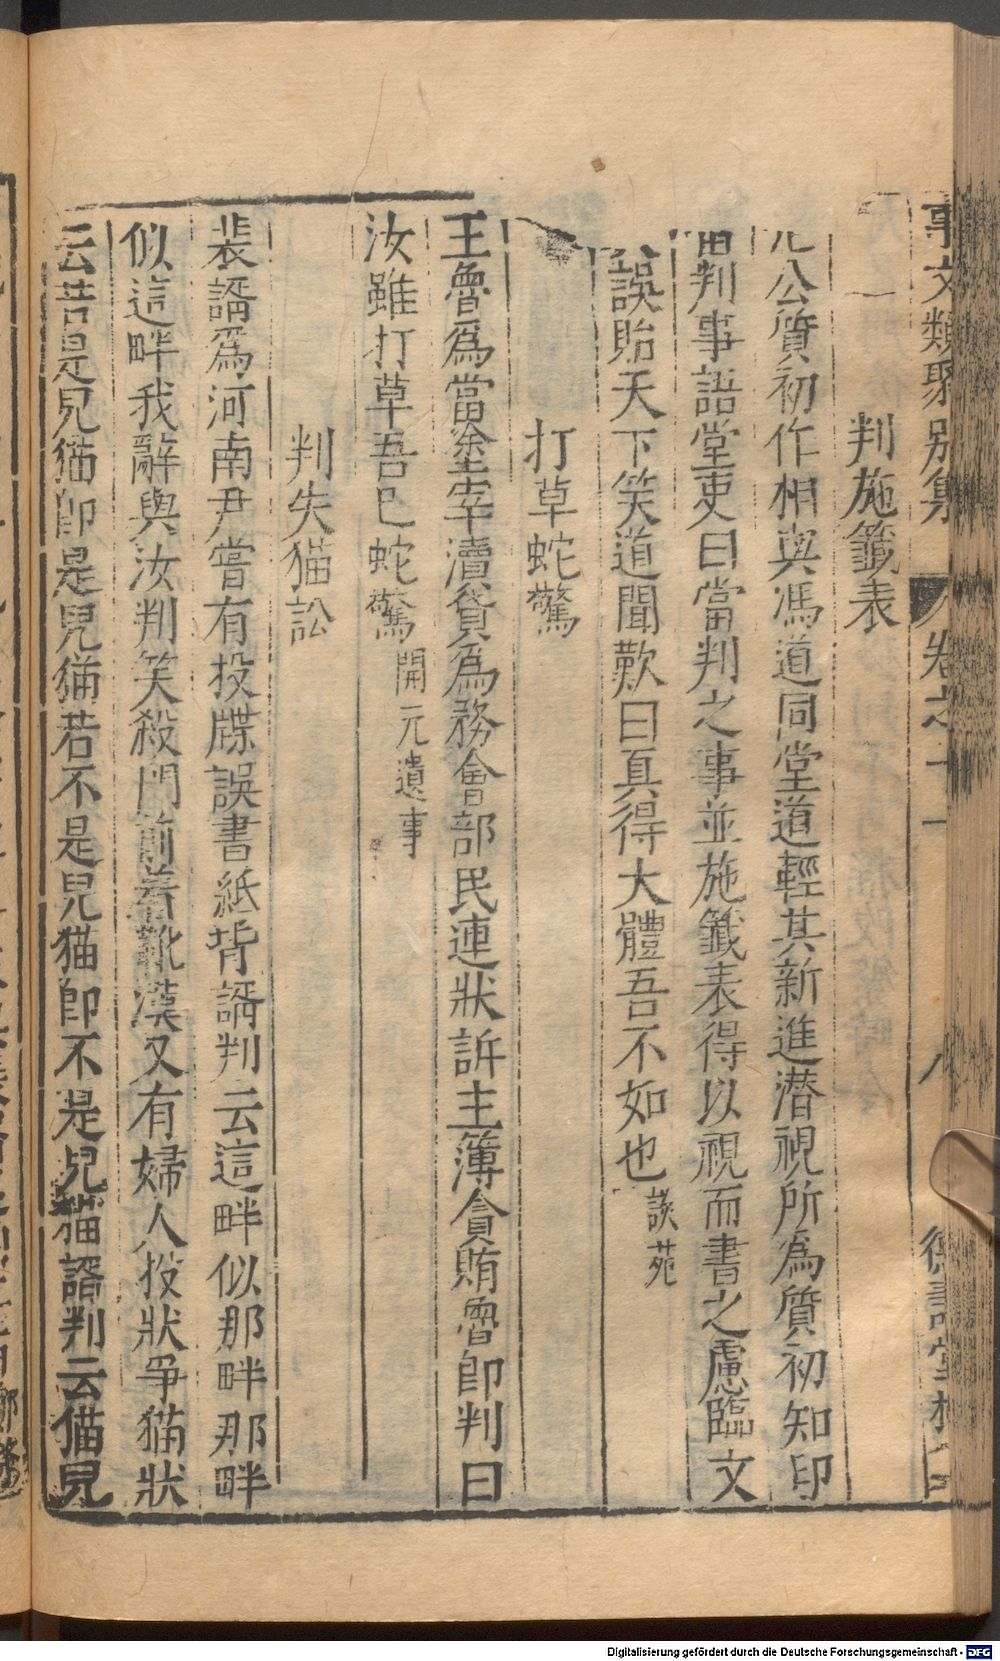 事文類聚別集 卷之十一 八 德壽堂梓
判施籤表
公質初作相與馮道同堂道輕其新進潛視所為質初知印
當判事語堂吏曰當判之事並施籤表得以視而書之慮臨文
誤貽天下笑道聞歎曰真得大體吾不如也 談苑
打草蛇驚
王魯爲當塗宰瀆貨爲務會部民連狀訴主簿貪賄魯即判曰
汝雖打草吾已蛇驚 開元遺事
判失猫訟
裴諝爲河南尹嘗有投牒誤書紙背諝判云這畔似那畔那畔
似這畔我辭與汝判笑殺門前着靴漢又有婦人投狀爭猫狀
云若是兒猫即是兒猫若不是兒猫即不是兒猫諝判云猫兒
Digitalisierung gefördert durch die Deutsche Forschungsgemeinschaft - DFG